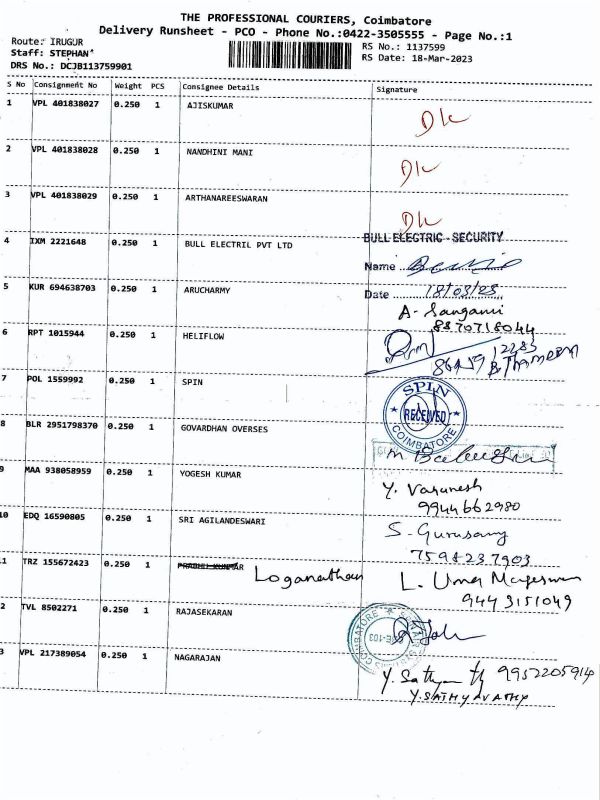 THE PROFESSIONAL COURIERS, Coimbatore
Delivery Runsheet - PCO - Phone No.:0422-3505555 - Page No.:1
Route: IRUGUR
RS No.: 1137599
Staff: STEPHAN
RS Date: 18-Mar-2023
DRS No.: DCJB113759901
S No Consignment No Weight PCS Consignee Details Signature
1 VPL 401838027 0.250 1 AJISKUMAR
2 VPL 401838028 0.250 1 NANDHINI MANI
3 VPL 401838029 0.250 1 ARTHANAREESWARAN
BULL ELECTRIC - SECURITY
4 IXM 2221648 0.250 1 BULL ELECTRIL PVT LTD
Name
5 KUR 694638703 0.250 1 ARUCHARMY
Date 18/03/23
A- Sangami
8870718044
6 RPT 1015944 0.250 1 HELIFLOW
7 POL 1559992 0.250 1 SPIN
SPIN
RECEIVED
COIMBATORE
8 BLR 2951798370 0.250 1 GOVARDHAN OVERSES
9 MAA 938058959 0.250 1 YOGESH KUMAR
Y. Varunesh
9944662980
10 EDQ 16590805 0.250 1 SRI AGILANDESWARI
S- Gurusamy
7598237903
1 TRZ 155672423 0.250 1 Loganathan L. Uma Mageswari
9443151049
2 TVL 8502271 0.250 1 RAJASEKARAN
COIMBATORE
3 VPL 217389054 0.250 1 NAGARAJAN
9952205914
Y.SATHYAVATHY